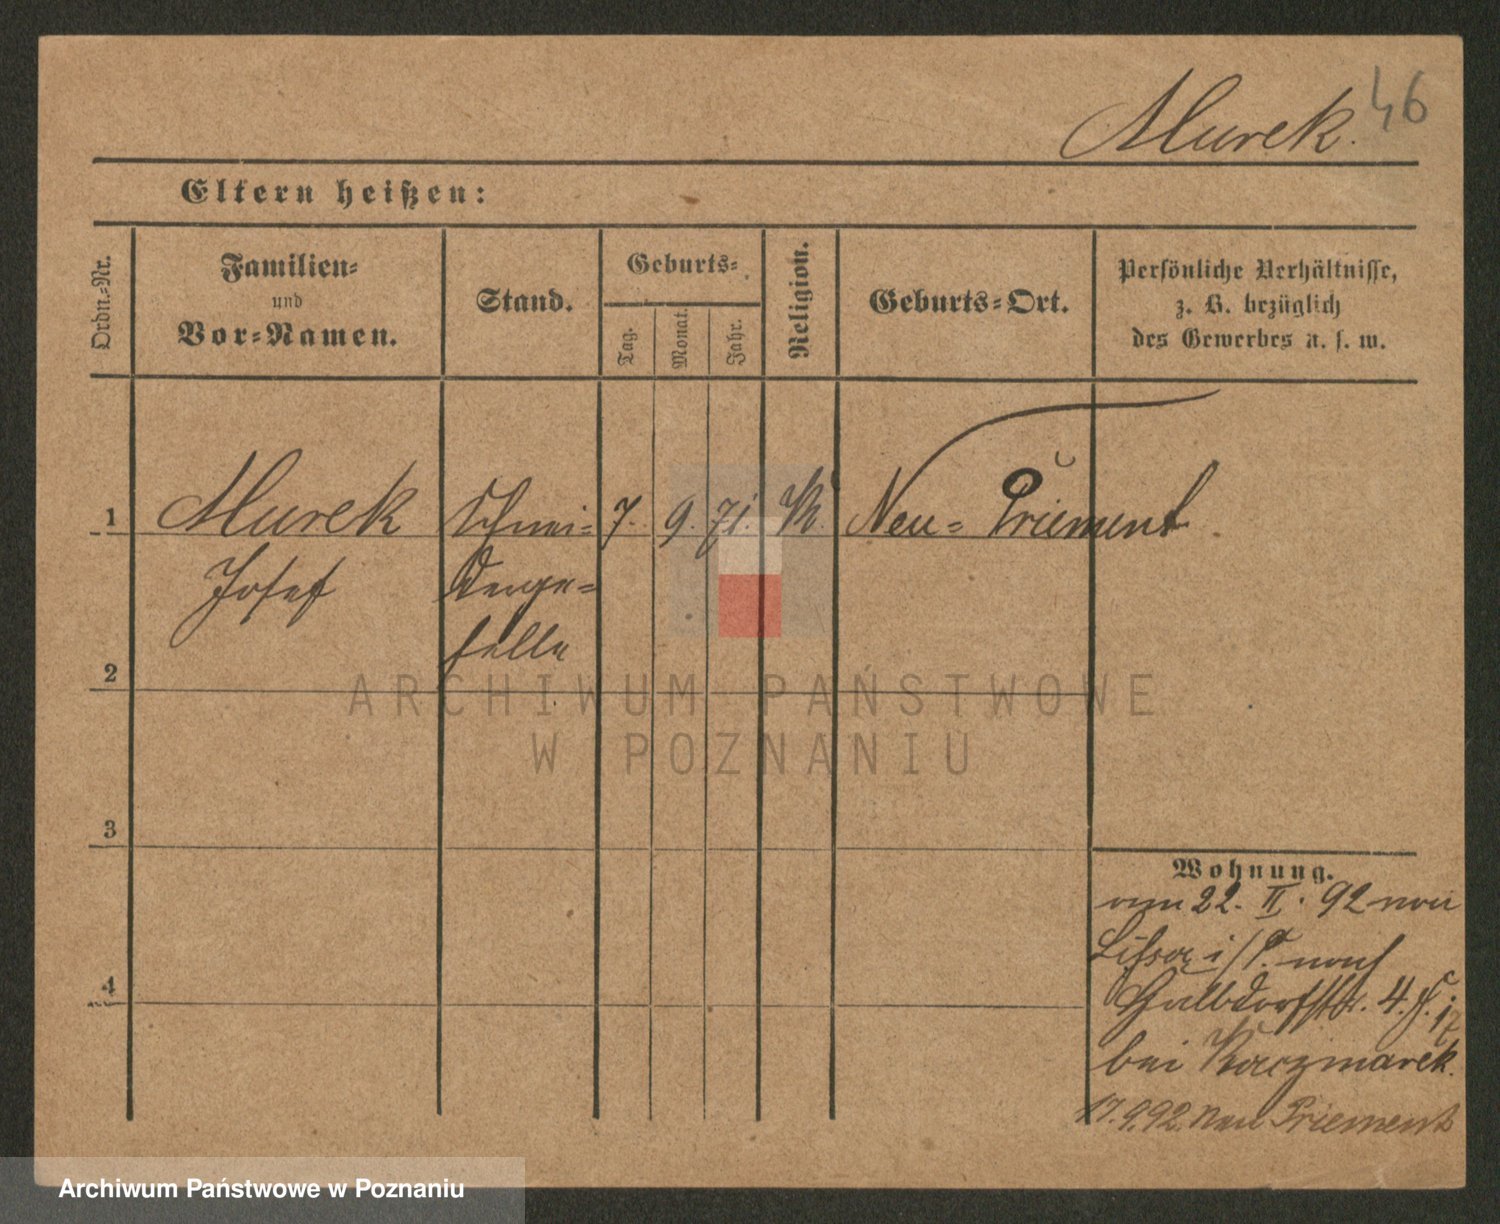 Murek. 46
Eltern heißen:
Ordn.-Nr.
Familien-
und
Vor-Namen.
Stand.
Geburts-
Tag.
Monat.
Jahr.
Religion.
Geburts-Ort.
Persönliche Verhältnisse,
z. B. bezüglich
des Gewerbes u. s. w.
1 Murek Schnei- 7. 9. 71. K. Neu- Priement.
Josef derge-
selle
2
3
4
Wohnung.
22. II. 92 von
i/P. nach
Halbdorfstr. 4.
bei Kaczmarek.
17.9.92. Neu Priement
ARCHIWUM PAŃSTWOWE
W POZNANIU
Archiwum Państwowe w Poznaniu